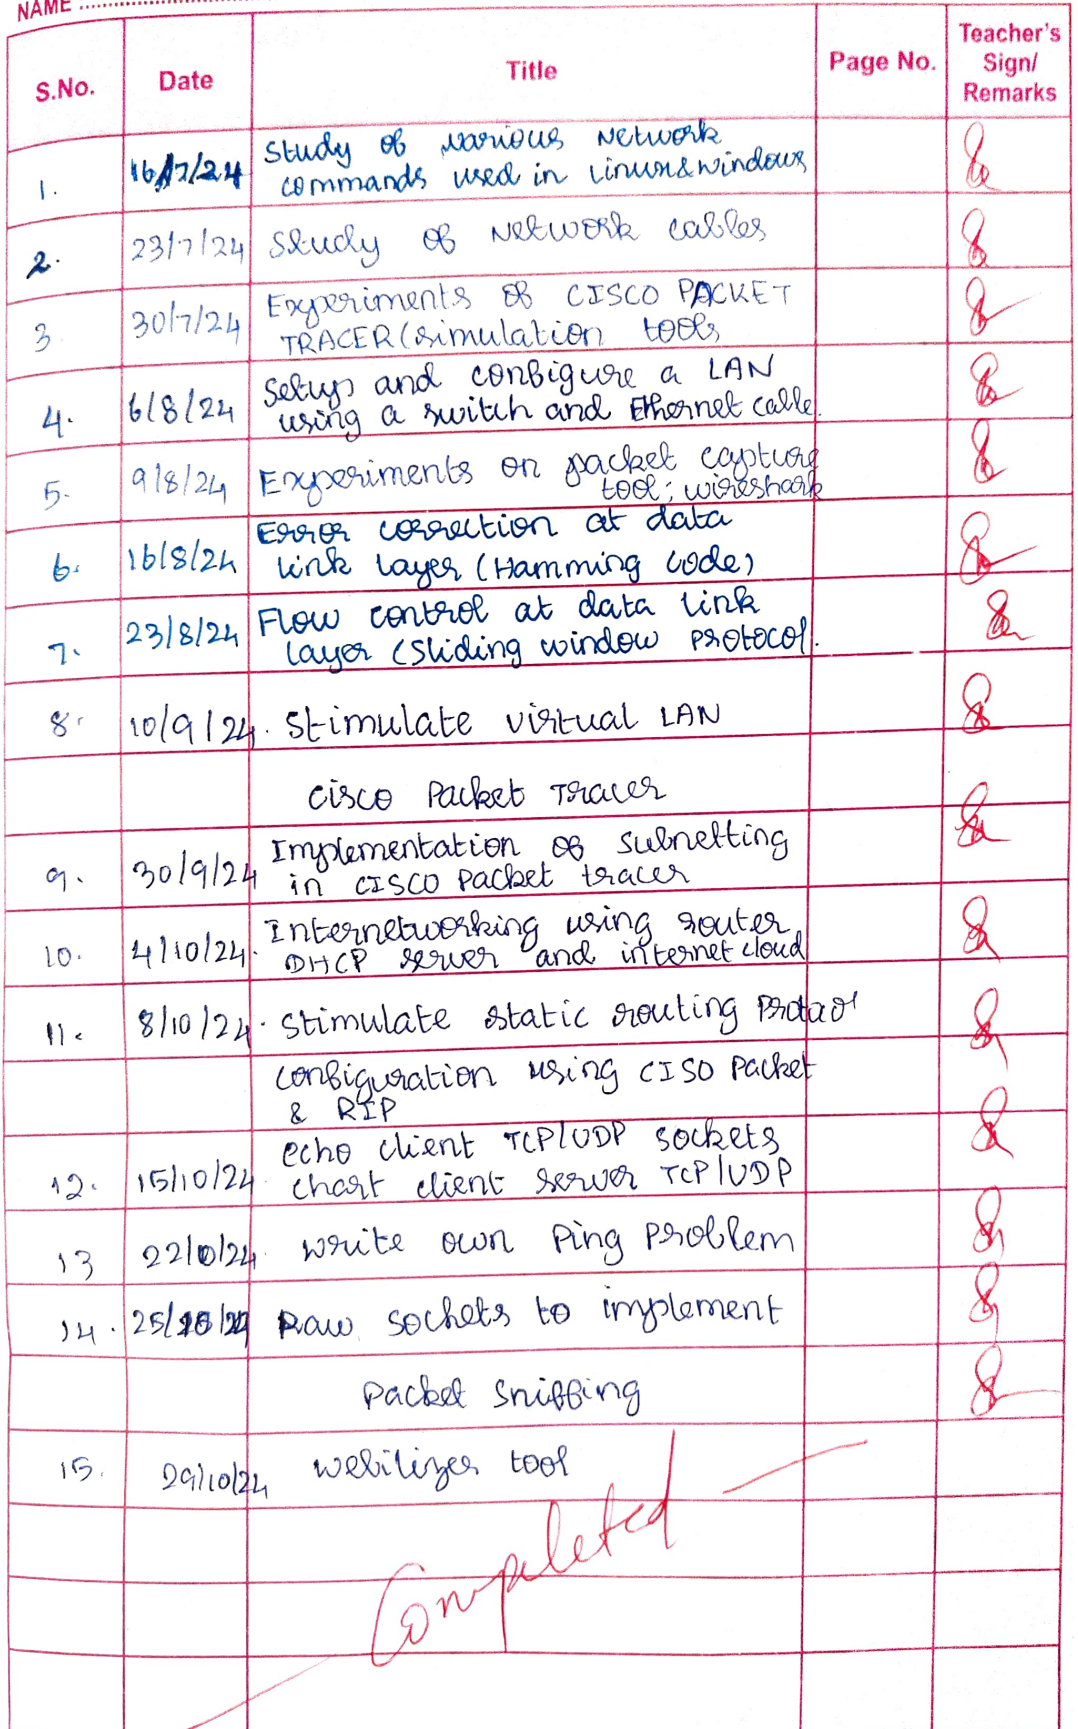 NAME
S.No. Date Title Page No. Teacher's Sign/ Remarks
1. 16/7/24 Study of various Network
commands used in Linux & windows
2. 23/7/24 Study of Network cables
3 30/7/24 Experiments of CISCO PACKET
TRACER (simulation tools
4. 6/8/24 Setup and configure a LAN
using a switch and Ethernet cable.
5. 9/8/24 Experiments on packet capture
tool; wireshark
6. 16/8/24 Error correction at data
link layer (Hamming code)
7. 23/8/24 Flow control at data link
layer (Sliding window protocol.
8. 10/9/24. Stimulate virtual LAN
cisco Packet Tracer
9. 30/9/24 Implementation of subnetting
in CISCO packet tracer
10. 4/10/24. Internetworking using router
DHCP server and internet cloud
11. 8/10/24. Stimulate static routing
configuration using CISO Packet
& RIP
12. 15/10/24 echo client TCP/UDP sockets
chart client server TCP/UDP
13 22/10/24. write own Ping Problem
14. Raw sockets to implement
Packet Sniffing
15. 29/10/24 webilizer tool
Completed